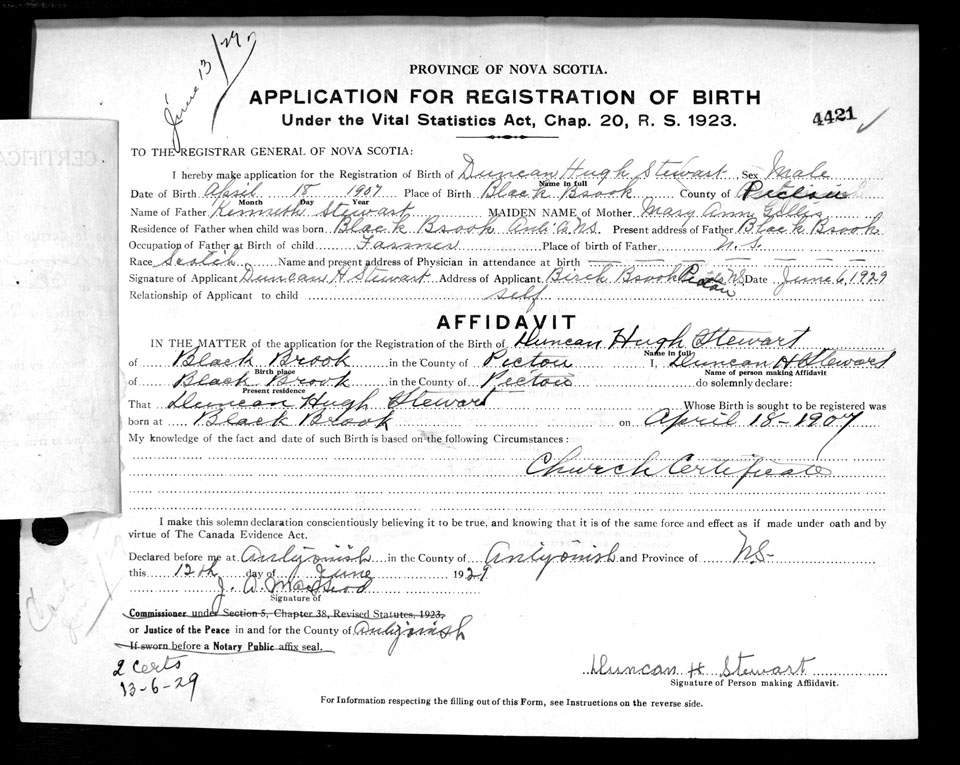 June 13/29
PROVINCE OF NOVA SCOTIA.
APPLICATION FOR REGISTRATION OF BIRTH
4421
Under the Vital Statistics Act, Chap. 20, R. S. 1923.
TO THE REGISTRAR GENERAL OF NOVA SCOTIA:
I hereby make application for the Registration of Birth of Duncan Hugh Stewart Sex Male
Name in full
Date of Birth April 18 1907 Place of Birth Black Brook County of Pictou
Month Day Year
Name of Father Kenneth Stewart MAIDEN NAME of Mother Mary Ann Gillis
Residence of Father when child was born Black Brook Ant. Co. N.S. Present address of Father Black Brook
Occupation of Father at Birth of child Farmer Place of birth of Father N. S.
Race Scotch Name and present address of Physician in attendance at birth — — — — — —
Signature of Applicant Duncan H Stewart Address of Applicant Birch Brook Pictou N.S. Date June 6, 1929
Relationship of Applicant to child self
AFFIDAVIT
IN THE MATTER of the application for the Registration of the Birth of Duncan Hugh Stewart
Name in full
of Black Brook in the County of Pictou I, Duncan H Stewart
Birth place Name of person making Affidavit
of Black Brook in the County of Pictou do solemnly declare:
Present residence
That Duncan Hugh Stewart Whose Birth is sought to be registered was
born at Black Brook on April 18-1907
My knowledge of the fact and date of such Birth is based on the following Circumstances:
Church Certificate
I make this solemn declaration conscientiously believing it to be true, and knowing that it is of the same force and effect as if made under oath and by
virtue of The Canada Evidence Act.
Declared before me at Antigonish in the County of Antigonish and Province of N.S-
this 12th day of June 1929
J. D. MacLeod
Signature of
Commissioner under Section 5, Chapter 38, Revised Statutes, 1923,
or Justice of the Peace in and for the County of Antigonish
If sworn before a Notary Public affix seal.
2 Certs
13-6-29
Duncan H Stewart
Signature of Person making Affidavit.
For Information respecting the filling out of this Form, see Instructions on the reverse side.